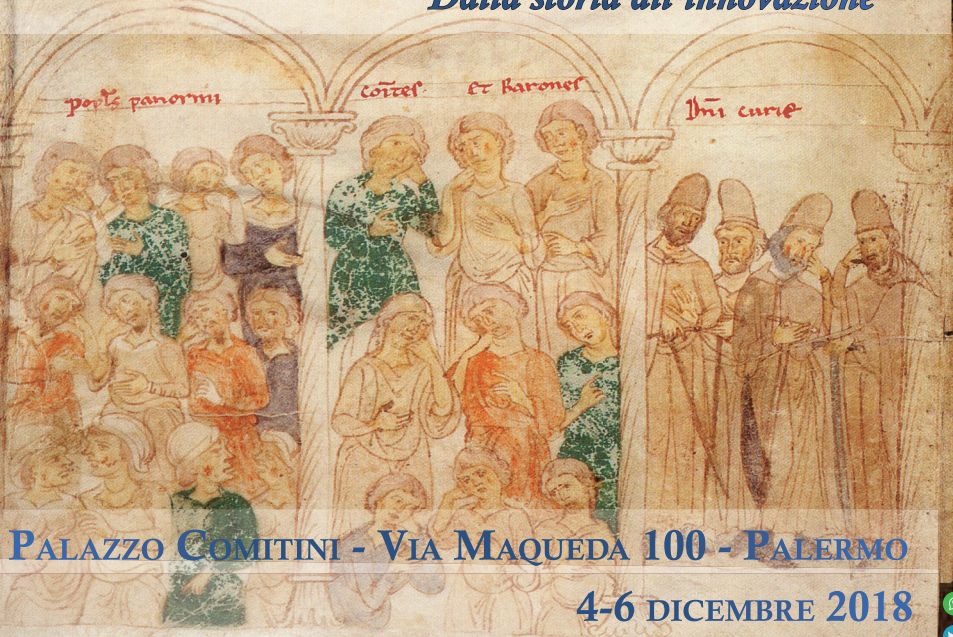 Dalla storia all'innovazione
popl̅s panormi
coi̅tes et Barones
Dn̅i curie
Palazzo Comitini - Via Maqueda 100 - Palermo
4-6 dicembre 2018